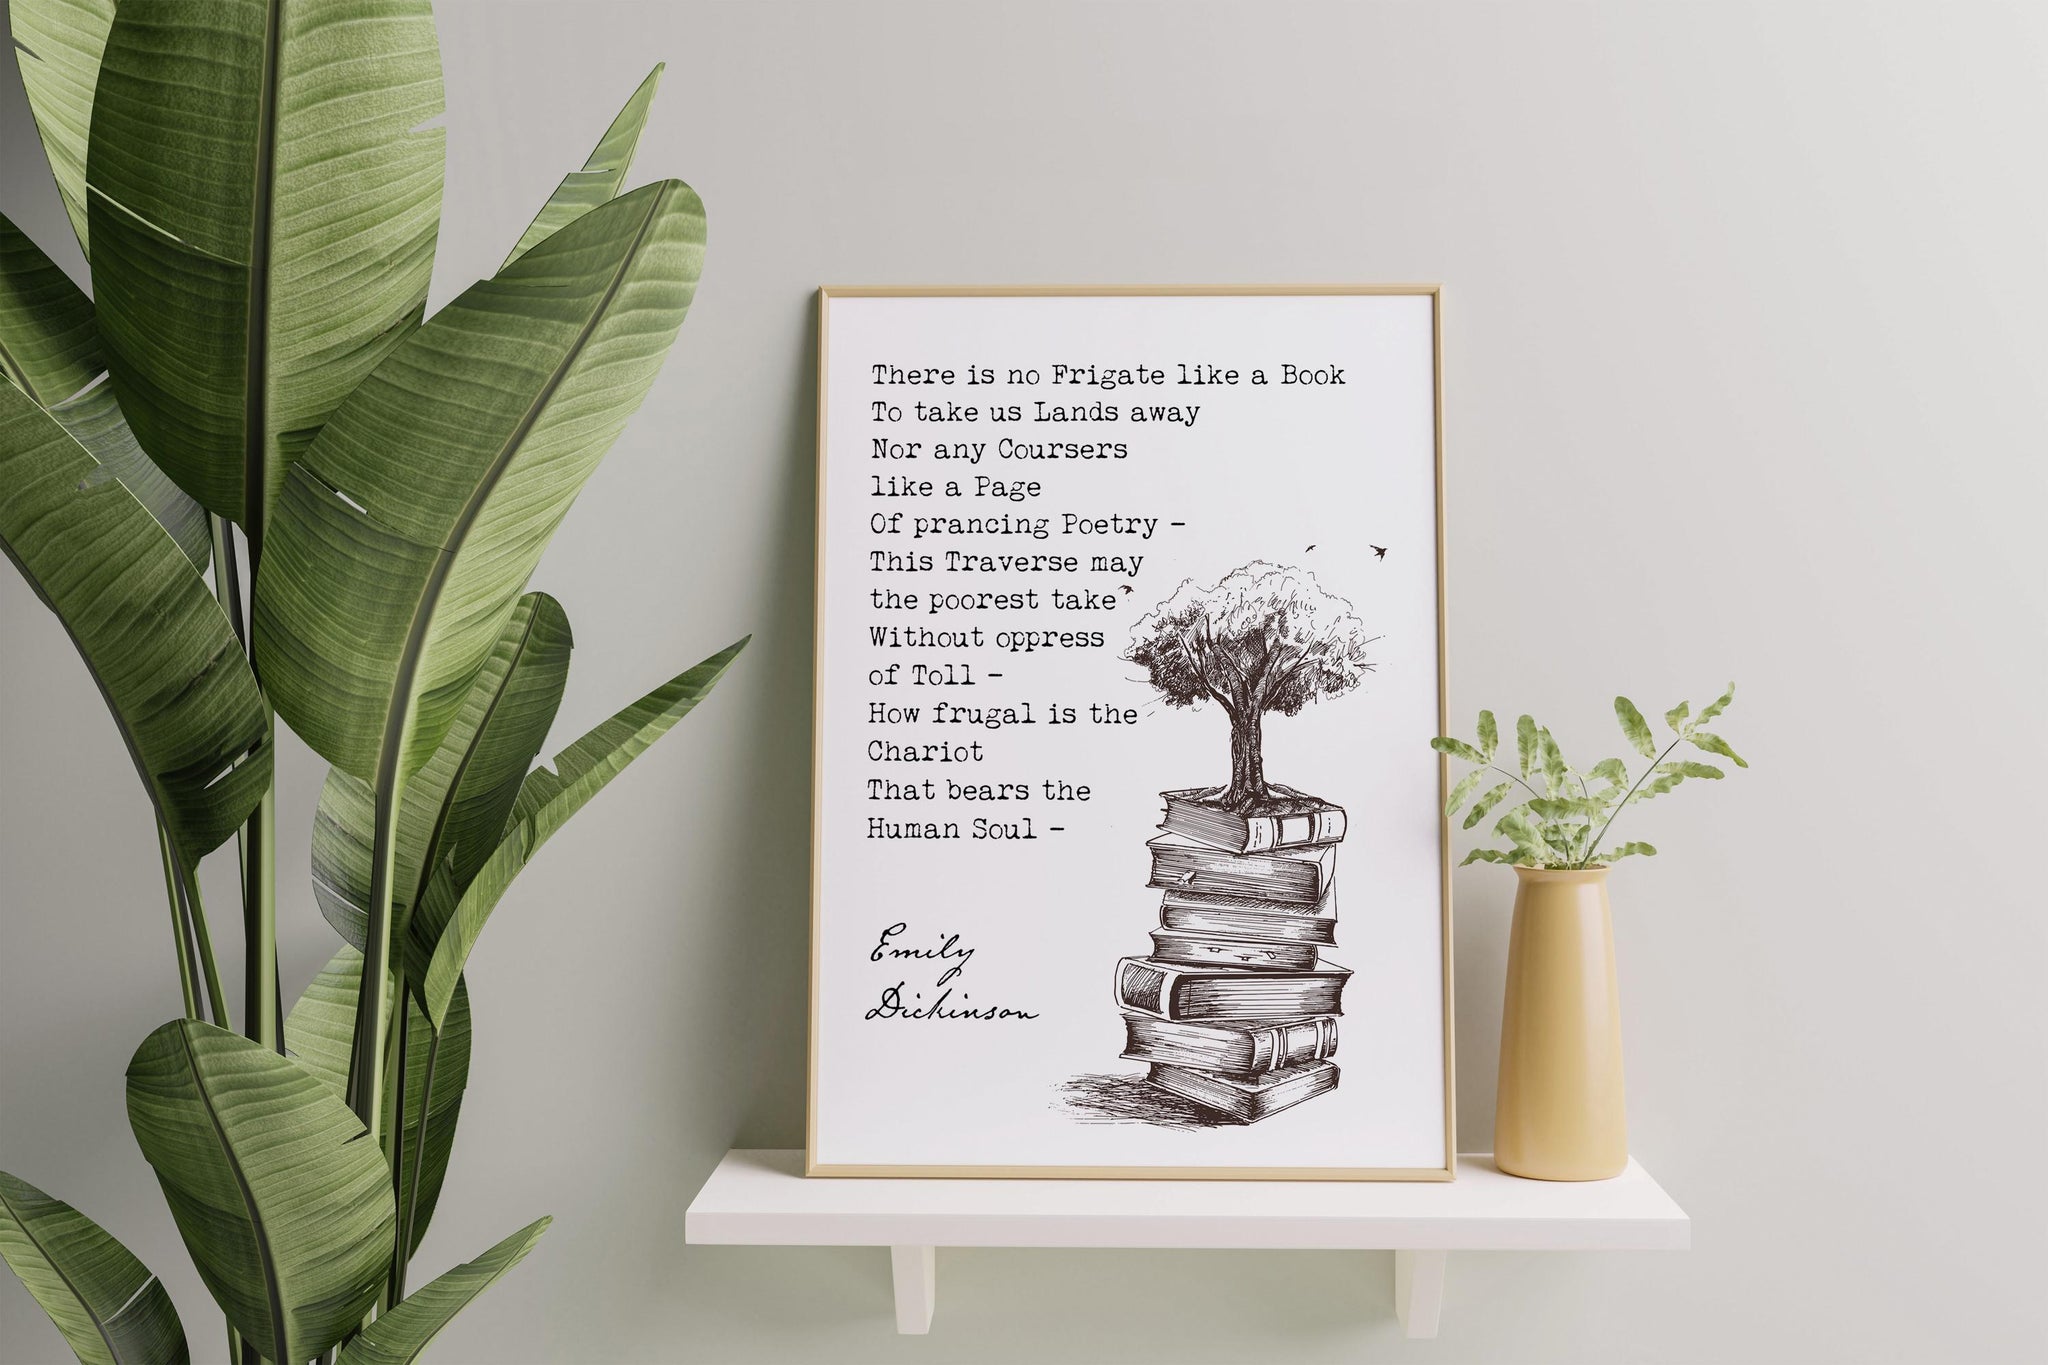 There is no Frigate like a Book
To take us Lands away
Nor any Coursers
like a Page
Of prancing Poetry –
This Traverse may
the poorest take
Without oppress
of Toll –
How frugal is the
Chariot
That bears the
Human Soul –
Emily
Dickinson